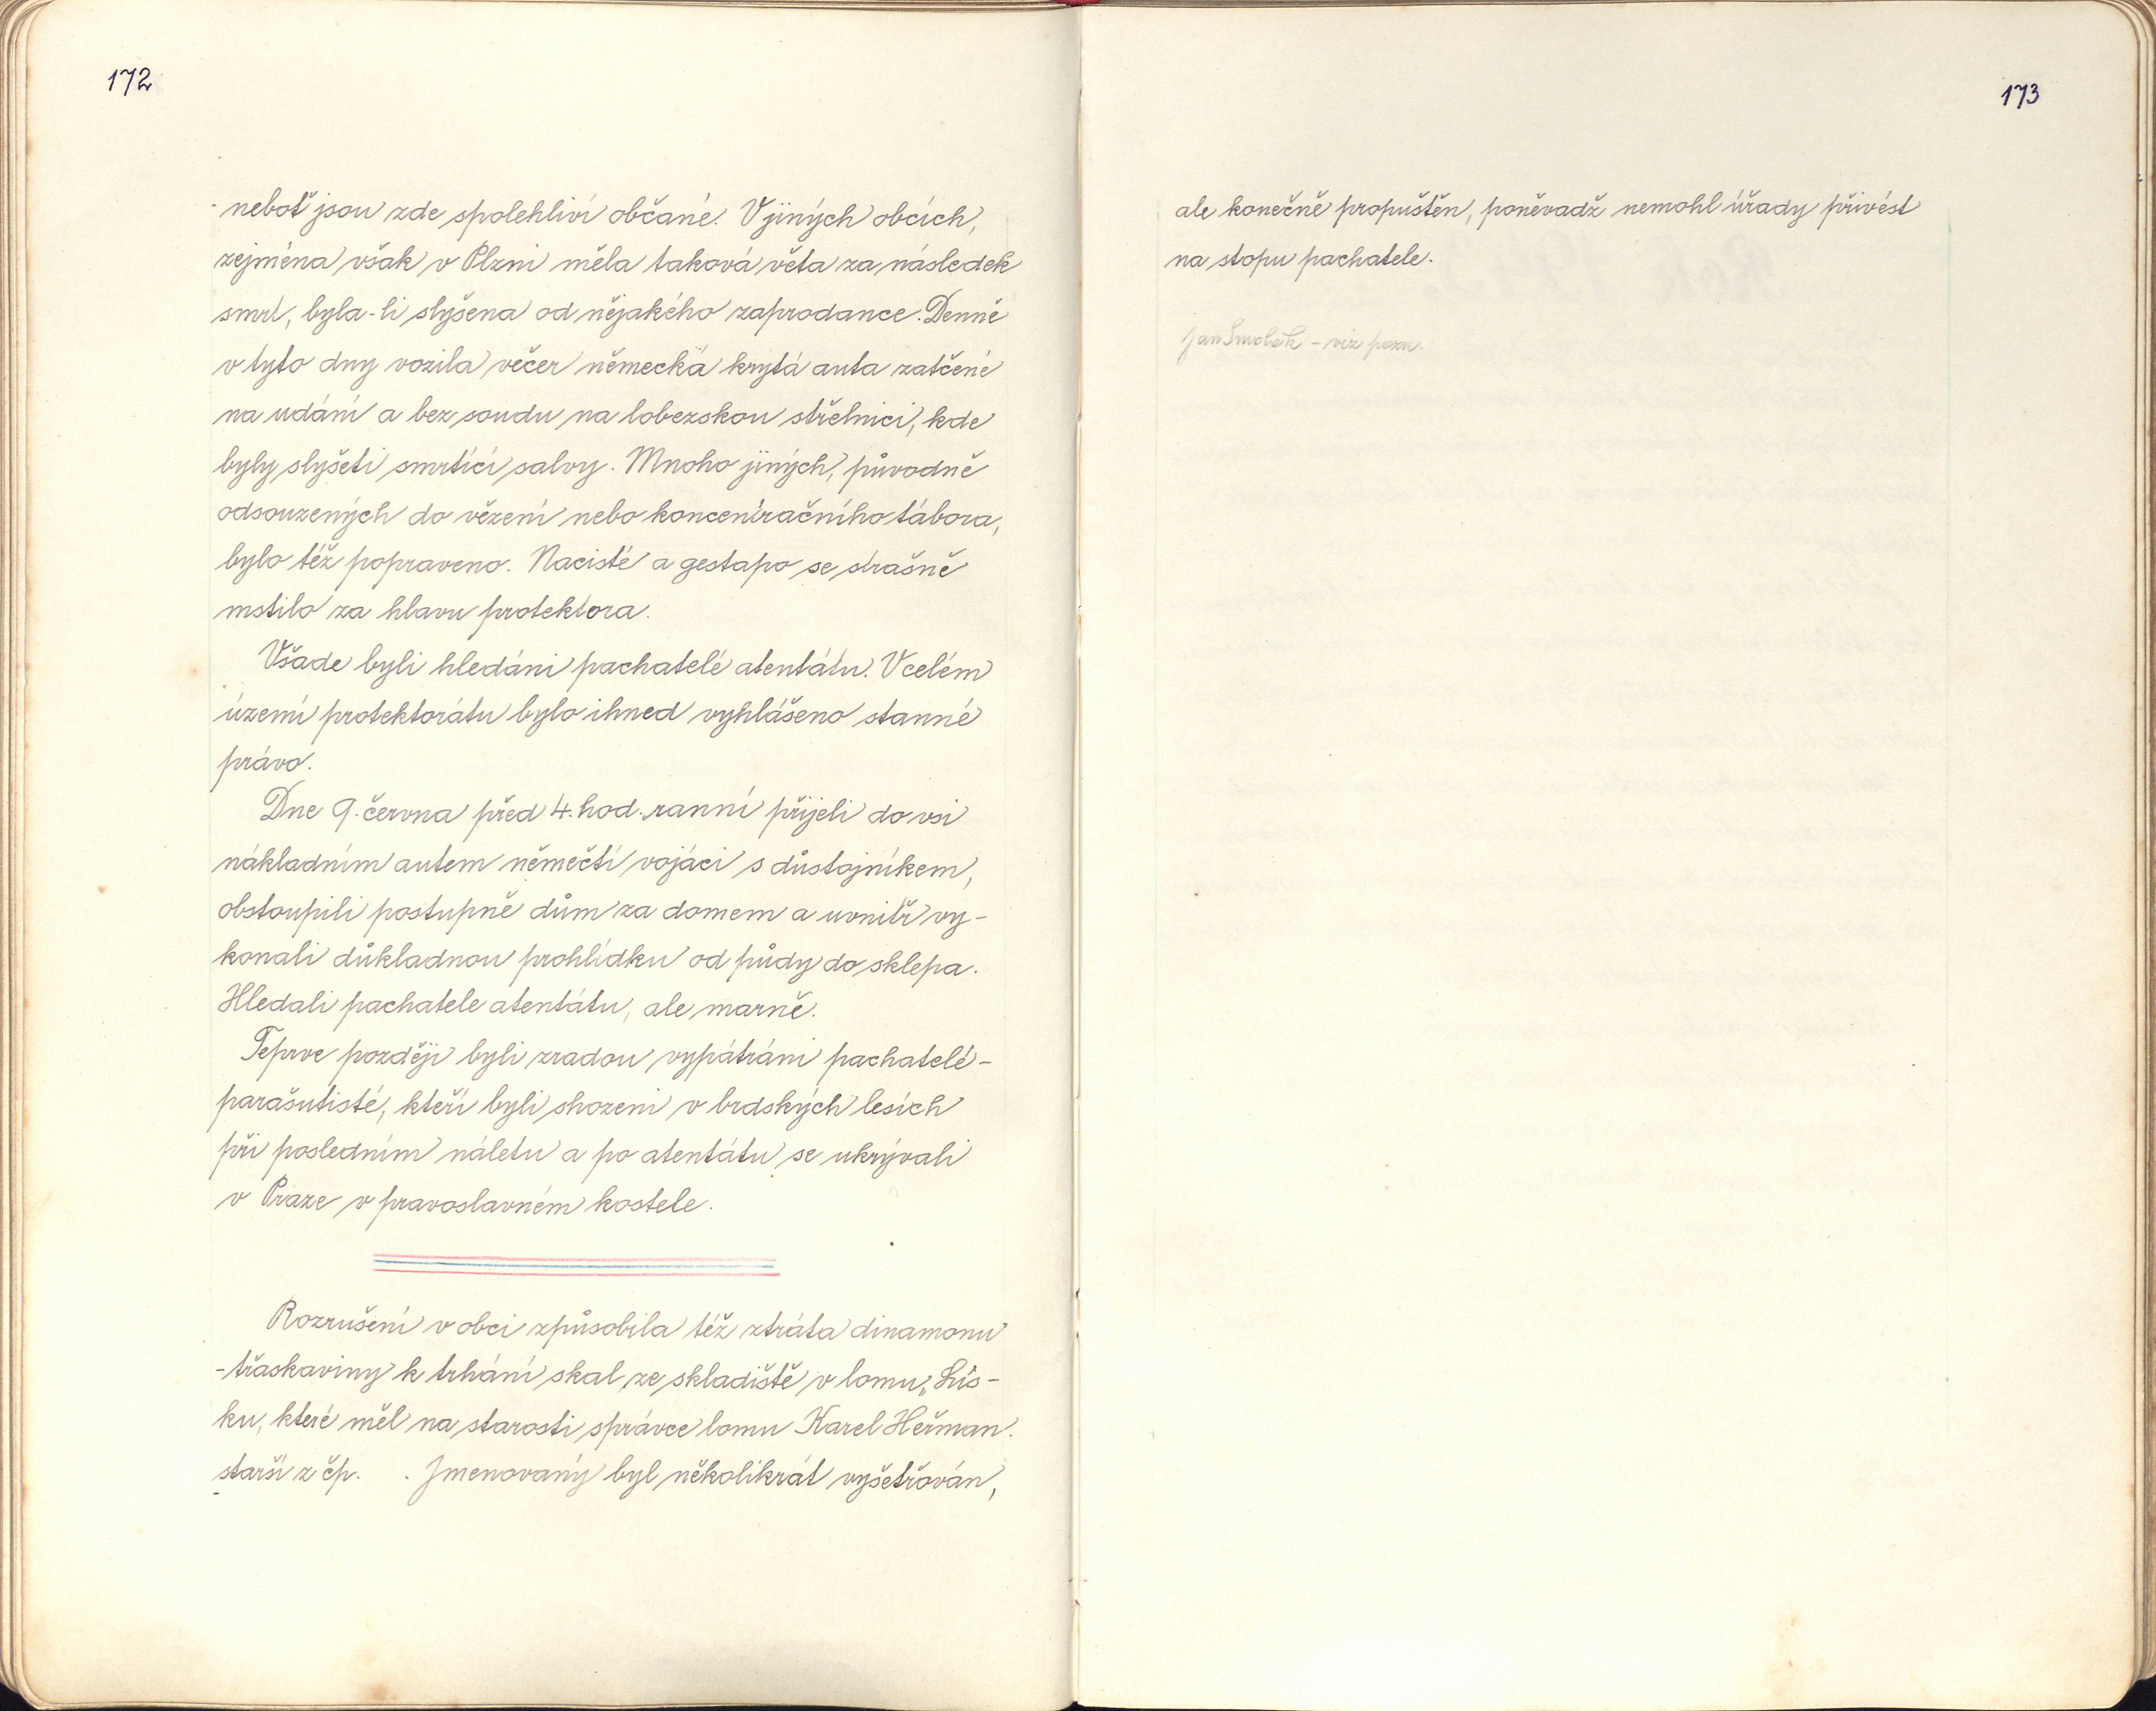 172
neboť jsou zde spolehliví občané. V jiných obcích,
zejména však v Plzni měla taková věta za následek
smrt, byla-li slyšena od nějakého zaprodance. Denně
v tyto dny vozila večer německá krytá auta zatčené
na udání a bez soudu na lobezskou střelnici, kde
byly slyšeti smrtící salvy. Mnoho jiných, původně
odsouzených do vězení nebo koncentračního tábora,
bylo též popraveno. Nacisté a gestapo se strašně
mstilo za hlavu protektora.
Všade byli hledáni pachatelé atentátu. V celém
území protektorátu bylo ihned vyhlášeno stanné
právo.
Dne 9. června před 4. hod. ranní přijeli do vsi
nákladním autem němečtí vojáci s důstojníkem,
obstoupili postupně dům za domem a uvnitř vy-
konali důkladnou prohlídku od půdy do sklepa.
Hledali pachatele atentátu, ale marně.
Teprve později byli zradou vypátráni pachatelé-
parašutisté, kteří byli shozeni v brdských lesích
při posledním náletu a po atentátu se ukrývali
v Praze v pravoslavném kostele.
Rozrušení v obci způsobila též ztráta dinamonu
-třaskaviny k trhání skal ze skladiště v lomu „Lís-
ku, které měl na starosti správce lomu Karel Heřman.
starší z čp. . Jmenovaný byl několikrát vyšetřován,
173
ale konečně propuštěn, poněvadž nemohl úřady přivést
na stopu pachatele.
Jan Smolák - viz pozn.